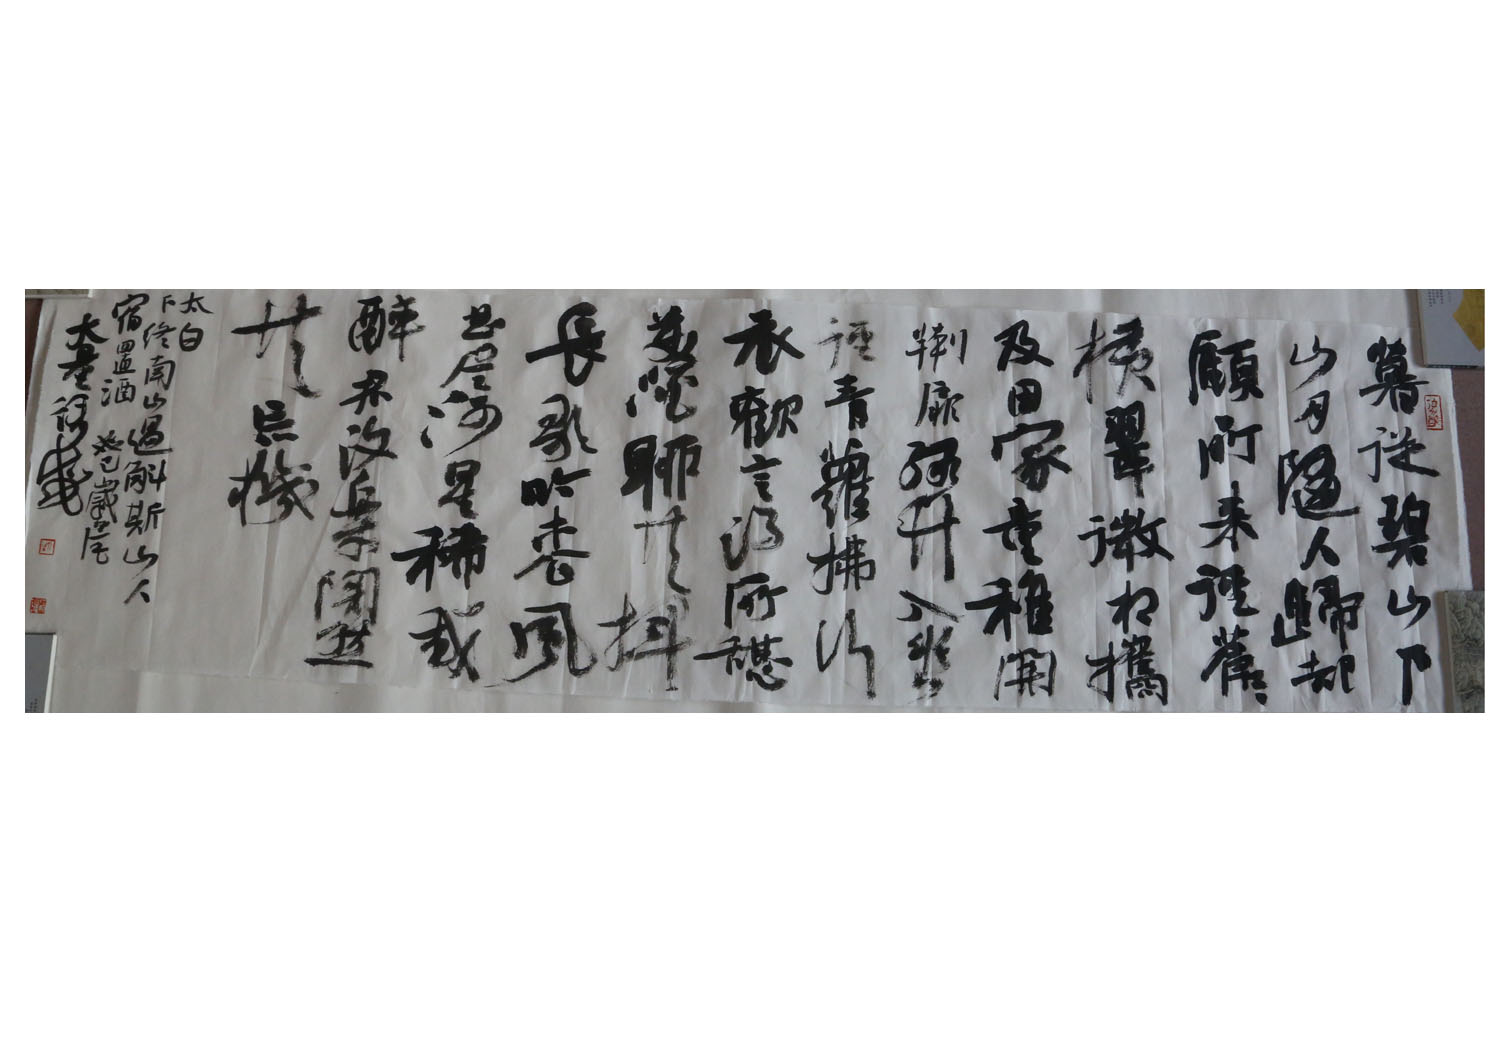 暮從碧山下
山月隨人歸却
顧所來徑蒼〻
橫翠微相攜
及田家童稚開
荊扉綠竹入幽
徑青蘿拂行
衣歡言得所憩
美酒聊共揮
長歌吟松風
曲盡河星稀我
醉君汝樂陶然
共忘機
太白
下終南山過斛斯山人
宿置酒 癸巳歲